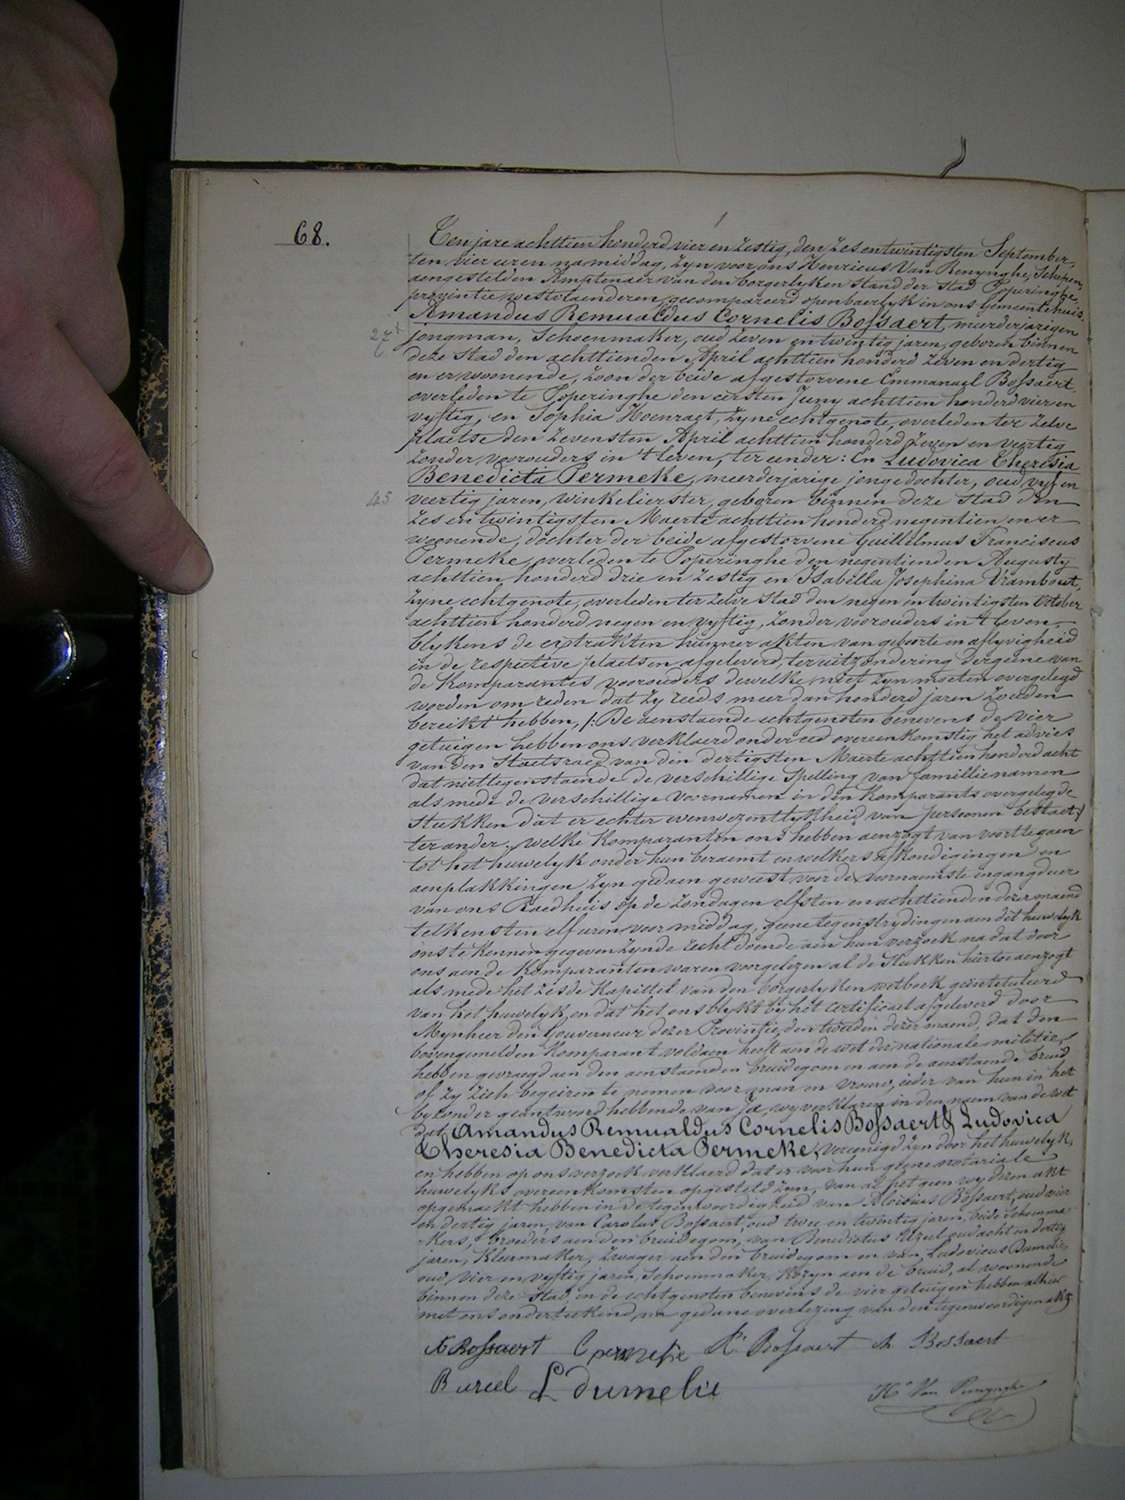 68.
Ten jare achttien honderd vier en zestig, den zes en twintigsten September,
ten vier uren namiddag, zyn voor ons Henricus Van Renynghe, Schepen,
aengestelden Amptenaer van den borgerlyken stand der stad Poperinghe,
provintie westvlaenderen, gecompareerd openbaerlyk in ons Gemeentehuis,
Amandus Remualdus Cornelis Bossaert, meerderjarigen
27
jongman, Schoenmaker, oud zeven en twintig jaren, geboren binnen
deze stad den achttienden April achttien honderd zeven en dertig
en er woonende, zoon der beide afgestorvene Emmanuel Bossaert
overleden te Poperinghe den eersten Juny achttien honderd vier en
vyftig, en Sophia Hoenraet, zyne echtgenote, overleden ter zelve
plaetse den zevensten April achttien honderd zeven en veertig
zonder voorouders in 't leven, ter eender: En Ludovica Theresia
Benedicta Permeke, meerderjarige jongedochter, oud vyf en
45
veertig jaren, winkelierster, geboren binnen deze stad den
zes en twintigsten Maerte achttien honderd negentien en er
woonende, dochter der beide afgestorvene Guillelmus Franciscus
Permeke, overleden te Poperinghe den negentienden Augusty
achttien honderd drie en zestig en Isabella Josephina Vrambout,
zyne echtgenote, overleden ter zelve stad den negen en twintigsten October
achttien honderd negen en vyftig, zonder voorouders in 't leven,
blykens de extrakten hunner akten van geboorte en aflyvigheid
in de respective plaetsen afgeleverd, ter uitzondering dergeene van
de Komparantes voorouders dewelke niet zyn moeten overgelegd
worden om reden dat zy reeds meer dan honderd jaren zouden
bereikt hebben, /: De aenstaende echtgenoten benevens de vier
getuigen hebben ons verklaerd onder eed overeenkomstig het advies
van den Staetsraed van den dertigsten Maerte achttien honderd acht
dat niettegenstaende de verschillige spelling van famillienamen
als mede de verschillige voornamen in den Komparants overgelegde
stukken dat er echter eenwezentlykheid van persoonen bestaet:/
ter ander; welke Komparanten ons hebben aenzogt van voorttegaen
tot het huwelyk onder hun beraemt en welkers afkondigingen en
aenplakkingen zyn gedaen geweest voor de voornaemste ingangdeur
van ons Raedhuis op de zondagen elfsten en achttienden dezer maend
telkens ten elf uren voor middag, geene tegenstrydingen aen dit huwelyk
ons te kennen gegeven zynde recht doende aen hun verzoek na dat door
ons aen de Komparanten waren voorgelezen al de Stukken hiertoe aenzogt
als mede het zesde Kapittel van den borgerlyken wetboek geintituleerd
van het huwelyk, en dat het ons blykt by het certificaet afgeleverd door
Mynheer den Gouverneur dezer Provintie, den tweeden dezer maend, dat den
bovengemelden Komparant voldaen heeft aen de wet der nationale militie,
hebben gevraegd aen den aenstaenden bruidegom en aen de aenstaende bruid
of zy zich begeiren te nemen voor man en vrouw, ieder van hun in het
byzonder geantwoord hebbende van ja, wy verklaren in den naem van de wet
dat Amandus Remualdus Cornelis Bossaert & Ludovica
Theresia Benedicta Permeke, vereenigd zyn door het huwelyk,
en hebben op ons verzoek verklaerd dat er voor hun geene notariale
huwelyks overeenkomsten opgesteld zyn, van al het geen wy dezen akt
opgemaekt hebben in de tegenwoordigheid van Aloisius Bossaert, oud vier
en dertig jaren, van Carolus Bossaert, oud twee en twintig jaren, beide schoenma-
kers, broeders aen den bruidegom, van Benedictus Ureel oud acht en dertig
jaren, Kleermaker, zwager aen den bruidegom en van Ludovicus Dumelie,
oud vier en vyftig jaren, schoenmaker, Kozyn aen de bruid, al woonende
binnen deze stad, en de echtgenoten benevens de vier getuigen hebben alhier
met ons onderteekend, na gedane overlezing van den tegenwoordigen akt.
A Bossaert C permeke A. Bossaert Ch Bossaert
B ureel L dumelie
He Van Renynghe